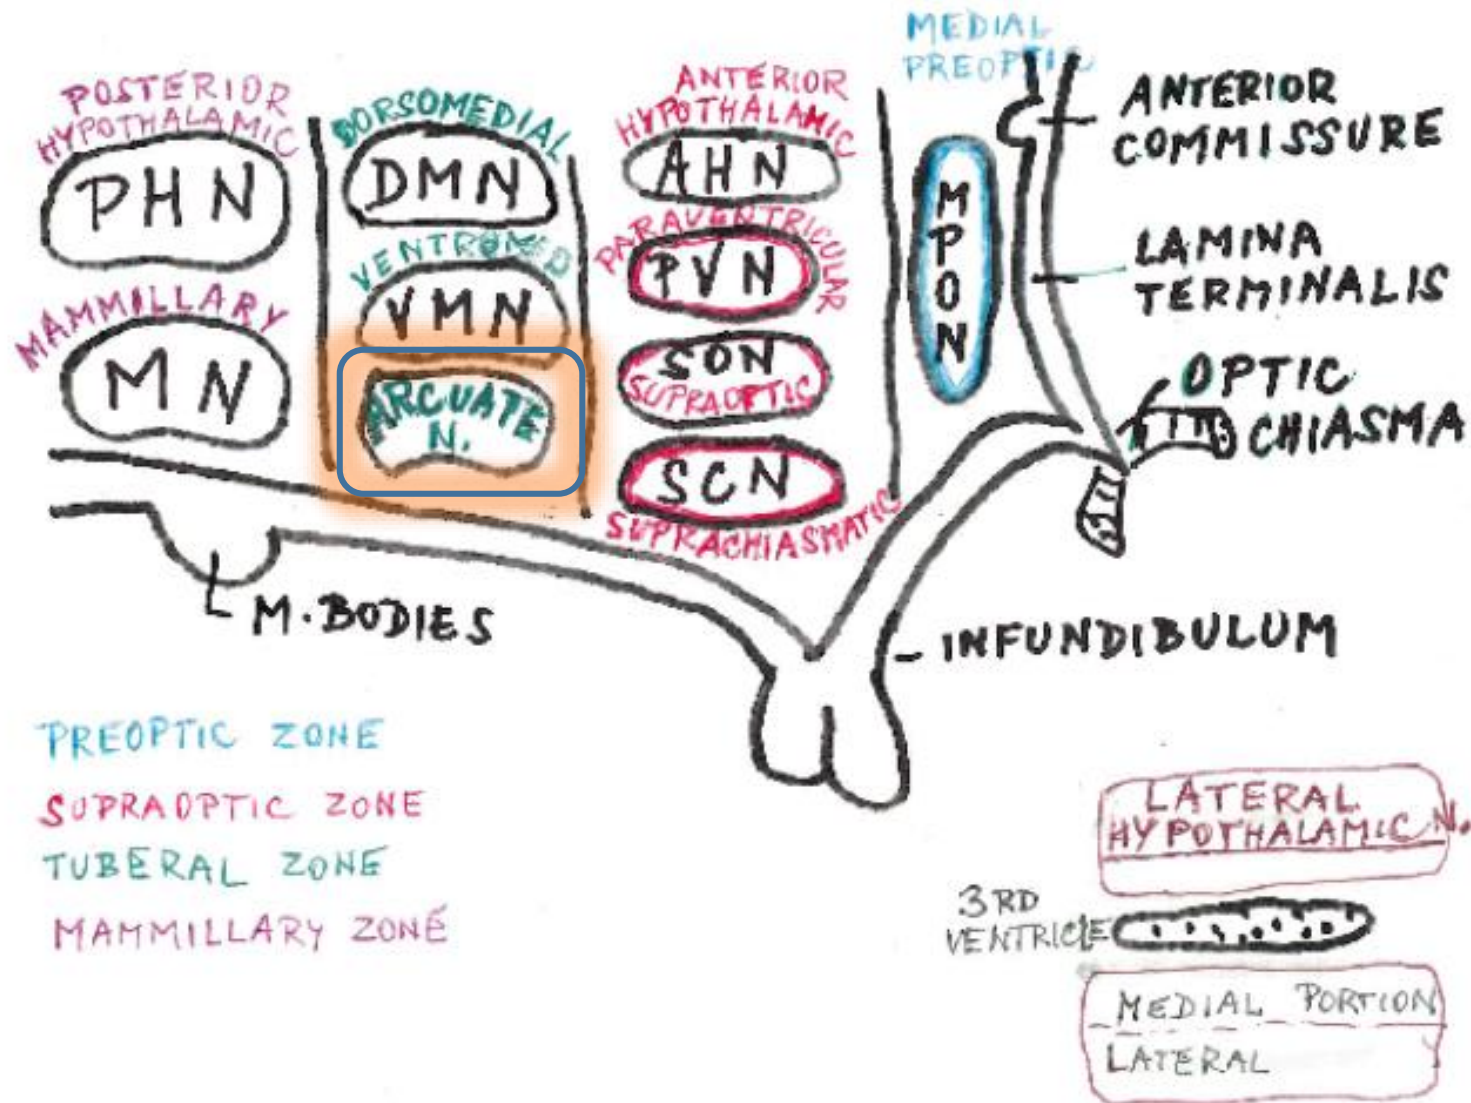 MEDIAL
PREOPTIC
POSTERIOR
HYPOTHALAMIC
PHN
MAMMILLARY
MN
DORSOMEDIAL
DMN
VENTROMED
VMN
ARCUATE
N.
ANTERIOR
HYPOTHALAMIC
AHN
PARAVENTRICULAR
PVN
SON
SUPRAOPTIC
SCN
SUPRACHIASMATIC
MPON
ANTERIOR
COMMISSURE
LAMINA
TERMINALIS
OPTIC
CHIASMA
M.BODIES
INFUNDIBULUM
PREOPTIC ZONE
SUPRAOPTIC ZONE
TUBERAL ZONE
MAMMILLARY ZONE
LATERAL
HYPOTHALAMIC N.
3RD
VENTRICLE
MEDIAL PORTION
LATERAL